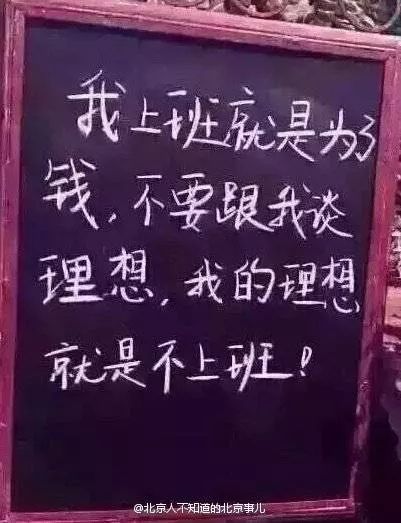 我上班就是为了
钱，不要跟我谈
理想，我的理想
就是不上班！
@北京人不知道的北京事儿